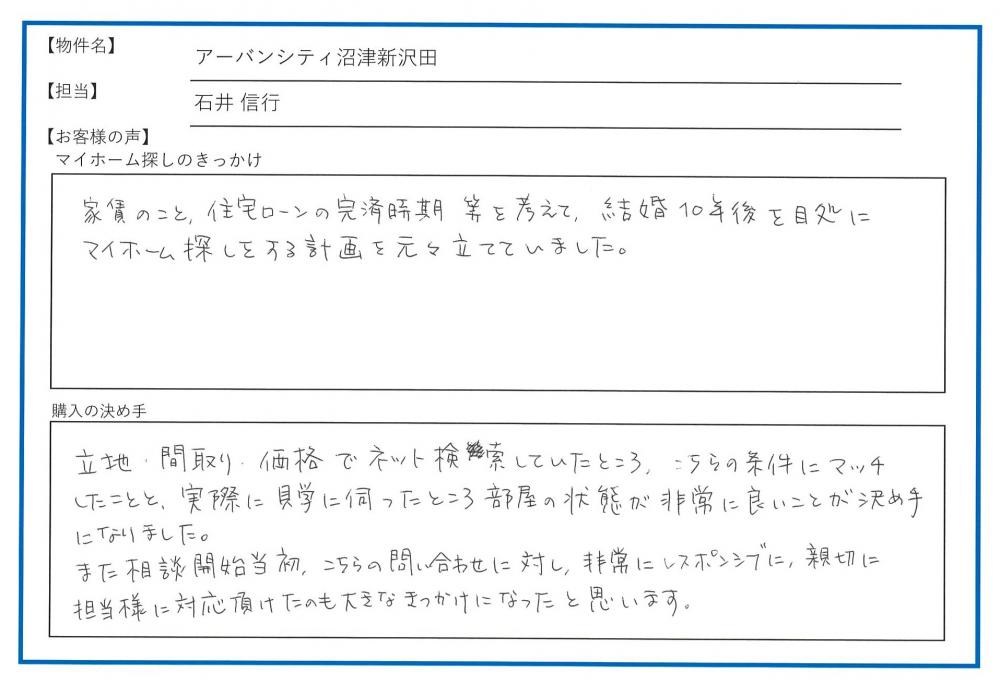 【物件名】
アーバンシティ沼津新沢田
【担当】
石井 信行
【お客様の声】
マイホーム探しのきっかけ
家賃のこと，住宅ローンの完済時期 等を考えて，結婚10年後を目処に
マイホーム探しをする計画を元々立てていました。
購入の決め手
立地・間取り・価格でネット検索していたところ，こちらの条件にマッチ
したことと，実際に見学に伺ったところ部屋の状態が非常に良いことが決め手
になりました。
また相談開始当初，こちらの問い合わせに対し，非常にレスポンシブに，親切に
担当様に対応頂けたのも大きなきっかけになったと思います。